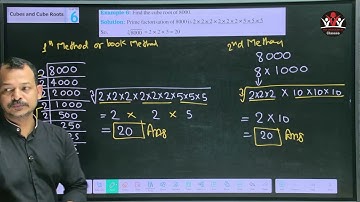 Cubes and Cube Roots
6
Example 6: Find the cube root of 8000.
Solution: Prime factorisation of 8000 is 2 × 2 × 2 × 2 × 2 × 2 × 5 × 5 × 5
So, ∛8000 = 2 × 2 × 5 = 20
Classes
1st Method or book Method
2 8000
2 4000
2 2000
2 1000
2 500
250
∛2×2×2×2×2×2×5×5×5
= 2 × 2 × 5
= 20 Ans
2nd Method
8000
8 × 1000
∛2×2×2 × 10×10×10
= 2 × 10
= 20 Ans